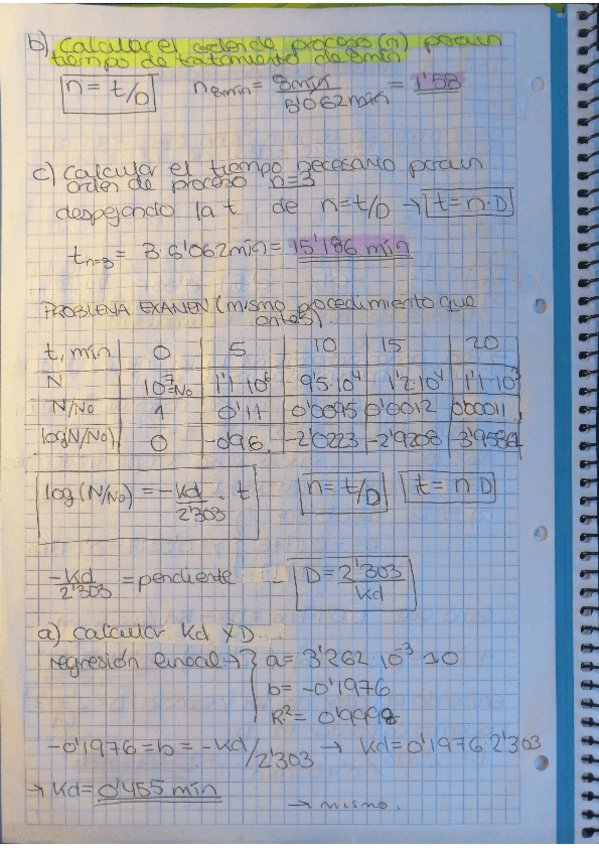 b) Calcular el orden de proceso (n) para un
tiempo de tratamiento de 8min
n = t/D n8min = 8min/5'062min = 1'58
c) Calcular el tiempo necesario para un
orden de proceso n=3
despejando la t de n=t/D → t=n·D
tn=3 = 3·5'062min = 15'186 min
PROBLEMA EXAMEN (mismo procedimiento que
antes)
t, min 0 5 10 15 20
N 10^7=No 1'1·10^6 9'5·10^4 1'2·10^4 1'1·10^3
N/No 1 0'11 0'0095 0'0012 0'00011
log(N/No) 0 -0'96 -2'0223 -2'9208 -3'9586
log(N/No) = -Kd/2'303 · t n=t/D t = n D
-Kd/2'303 = pendiente D = 2'303/Kd
a) calcular Kd y D
regresión lineal → a= 3'262·10^-3 ≃0
b= -0'1976
R²= 0'9998
-0'1976 = b = -Kd/2'303 → Kd=0'1976·2'303
→ Kd= 0'455 min
→ mismo.